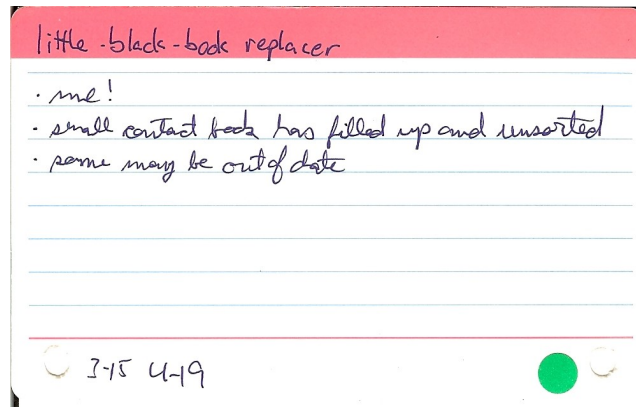 little-black-book replacer
· me!
· small contact book has filled up and unsorted
· some may be out of date
3-15 U-19